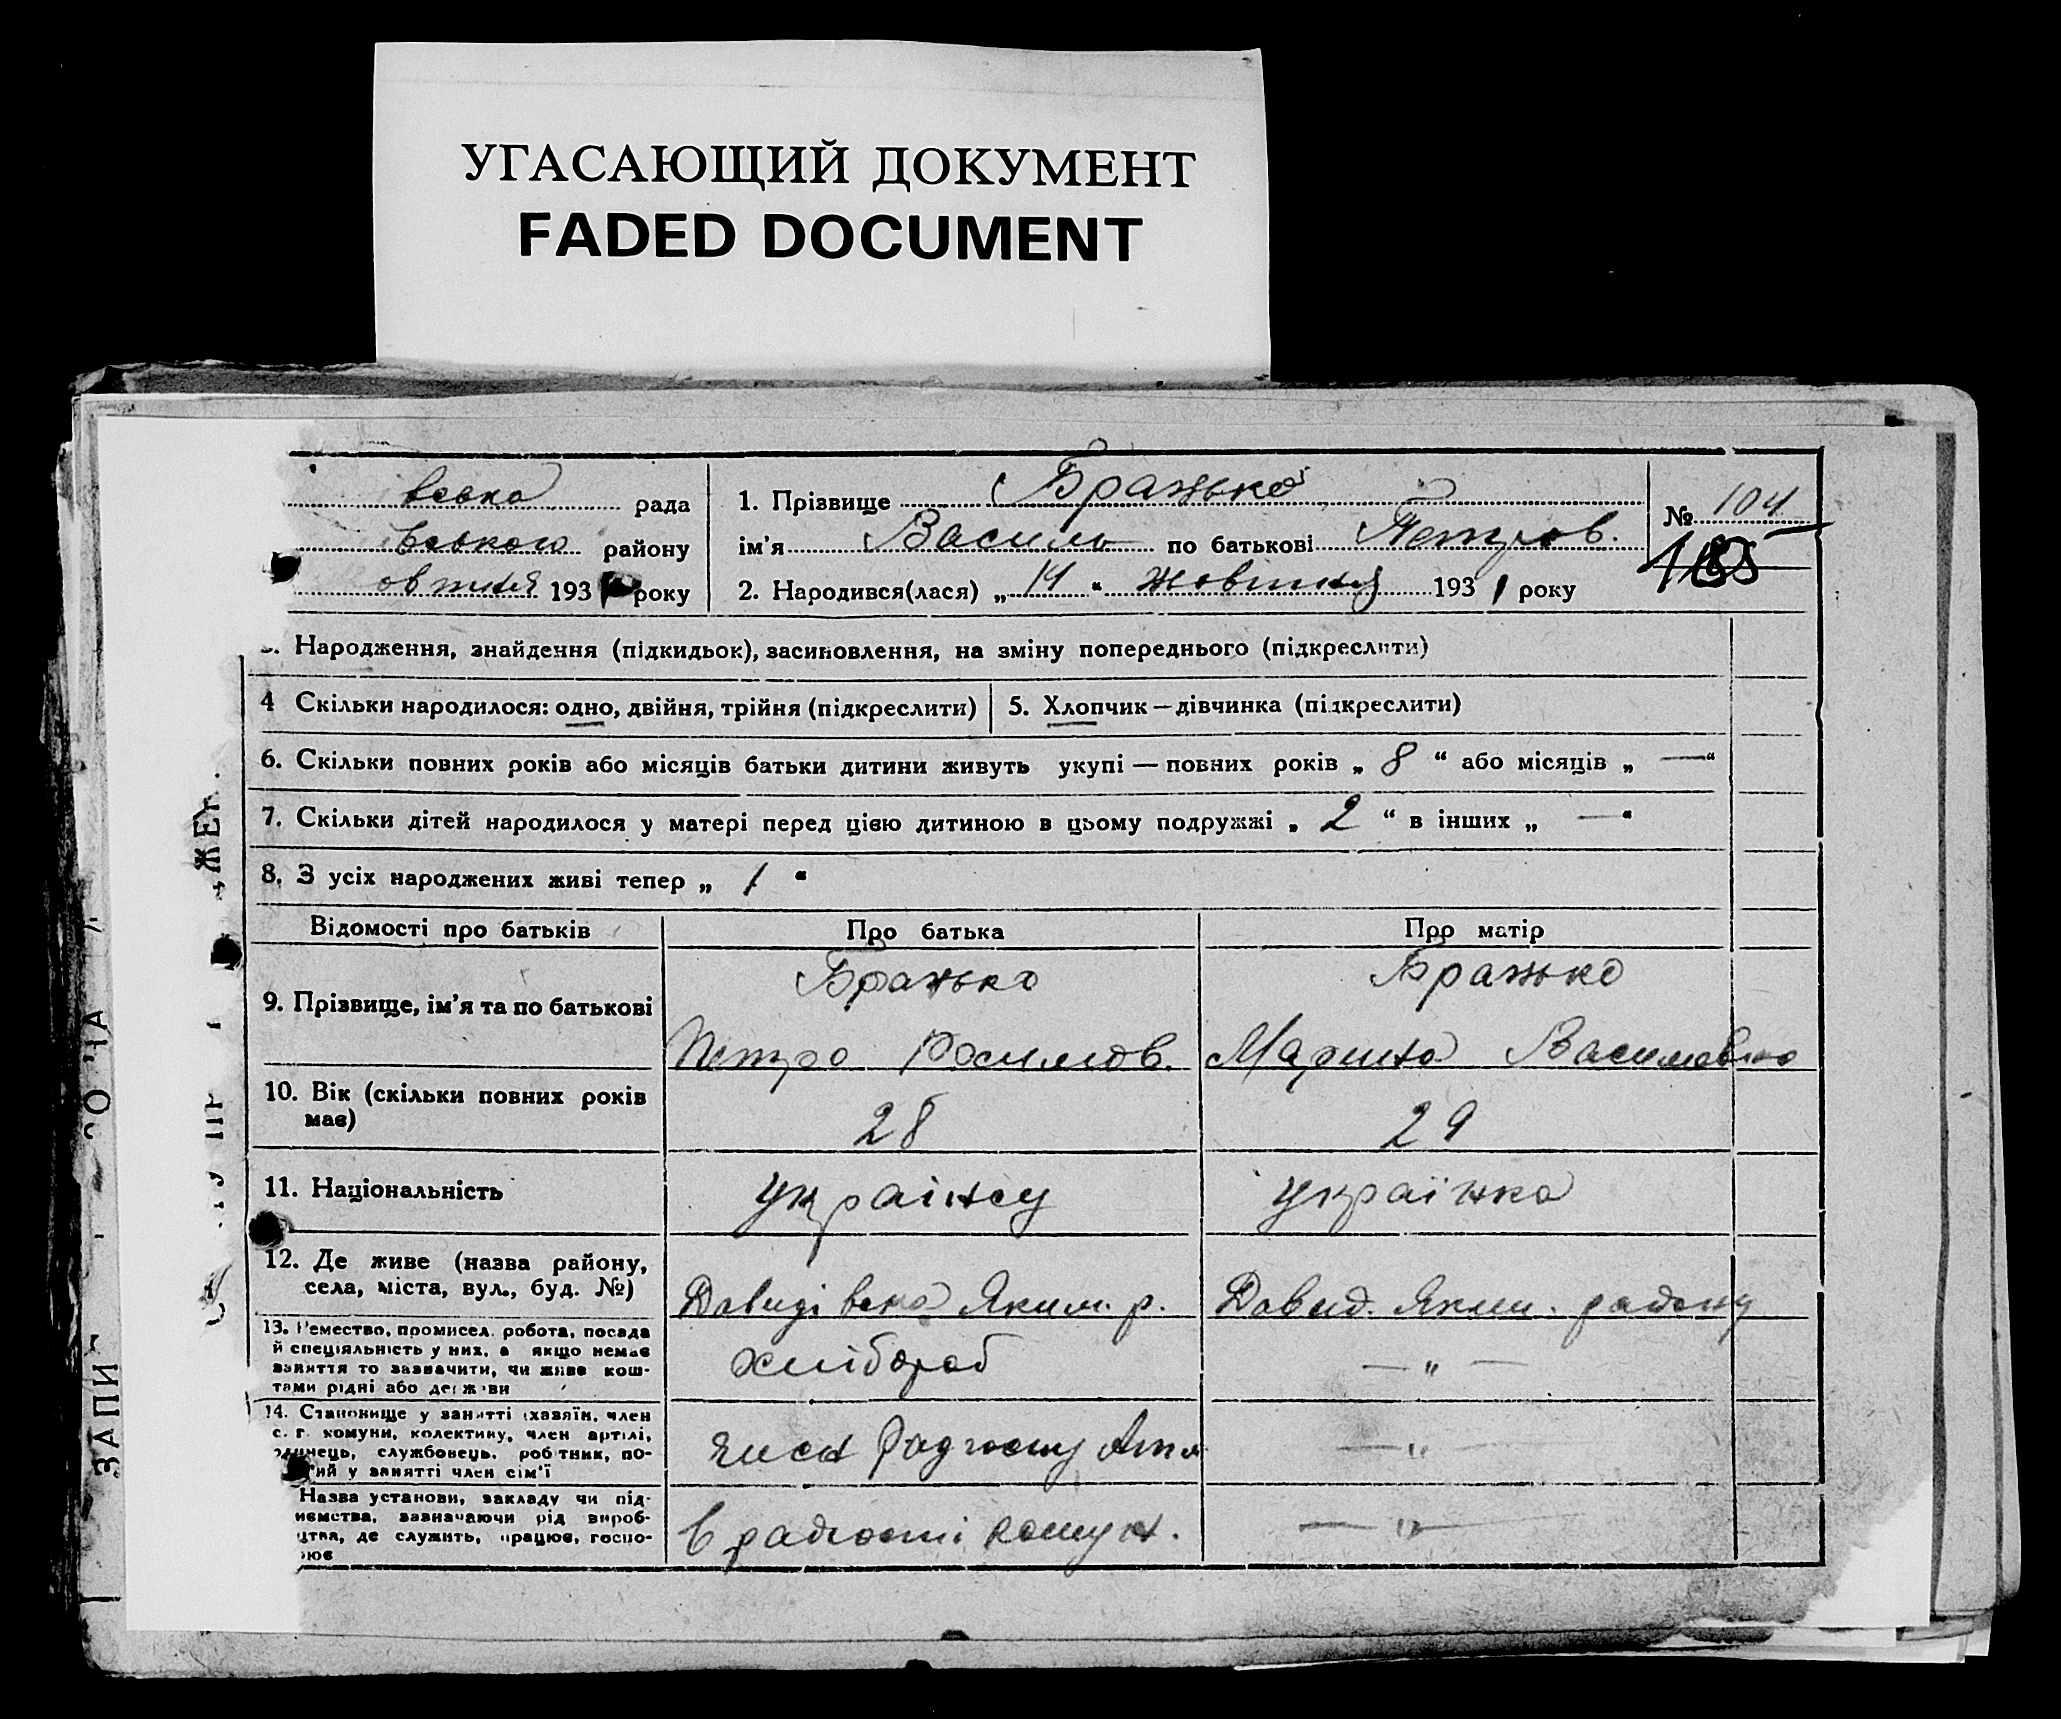 УГАСАЮЩИЙ ДОКУМЕНТ
FADED DOCUMENT
вська рада
вського району
овтня 193 року
1. Прізвище Бражько
ім'я Василь по батькові Петров.
2. Народився(лася) „14“ жовтня 1931 року
№ 104
Народження, знайдення (підкидьок), засиновлення, на зміну попереднього (підкреслити)
4 Скільки народилося: одно, двійня, трійня (підкреслити)
5. Хлопчик — дівчинка (підкреслити)
6. Скільки повних років або місяців батьки дитини живуть укупі — повних років „8“ або місяців „—“
7. Скільки дітей народилося у матері перед цією дитиною в цьому подружжі „2“ в інших „—“
8. З усіх народжених живі тепер „1“
Відомості про батьків Про батька Про матір
9. Прізвище, ім'я та по батькові
Бражько
Петро
Бражько
Марина Василевна
10. Вік (скільки повних років має)
28
29
11. Національність
українец
українка
12. Де живе (назва району,
села, міста, вул., буд. №)
Давидівка Яким. р.
Давид. Яким. району
13. Ремество, промисел, робота, посада
й спеціяльність у них, а якщо немає
заняття то зазначити, чи живе кош-
тами рідні або держави
хлібороб
— „ —
14. Становище у занятті (хазяїн, член
с. г. комуни, колективу, член артілі,
службовець, робітник, по-
у занятті член сім'ї
член
— „ —
Назва установи, закладу чи під-
зазначаючи рід вироб-
де служить, працює, госпо-
в комун.
— „ —
ЗАПИ